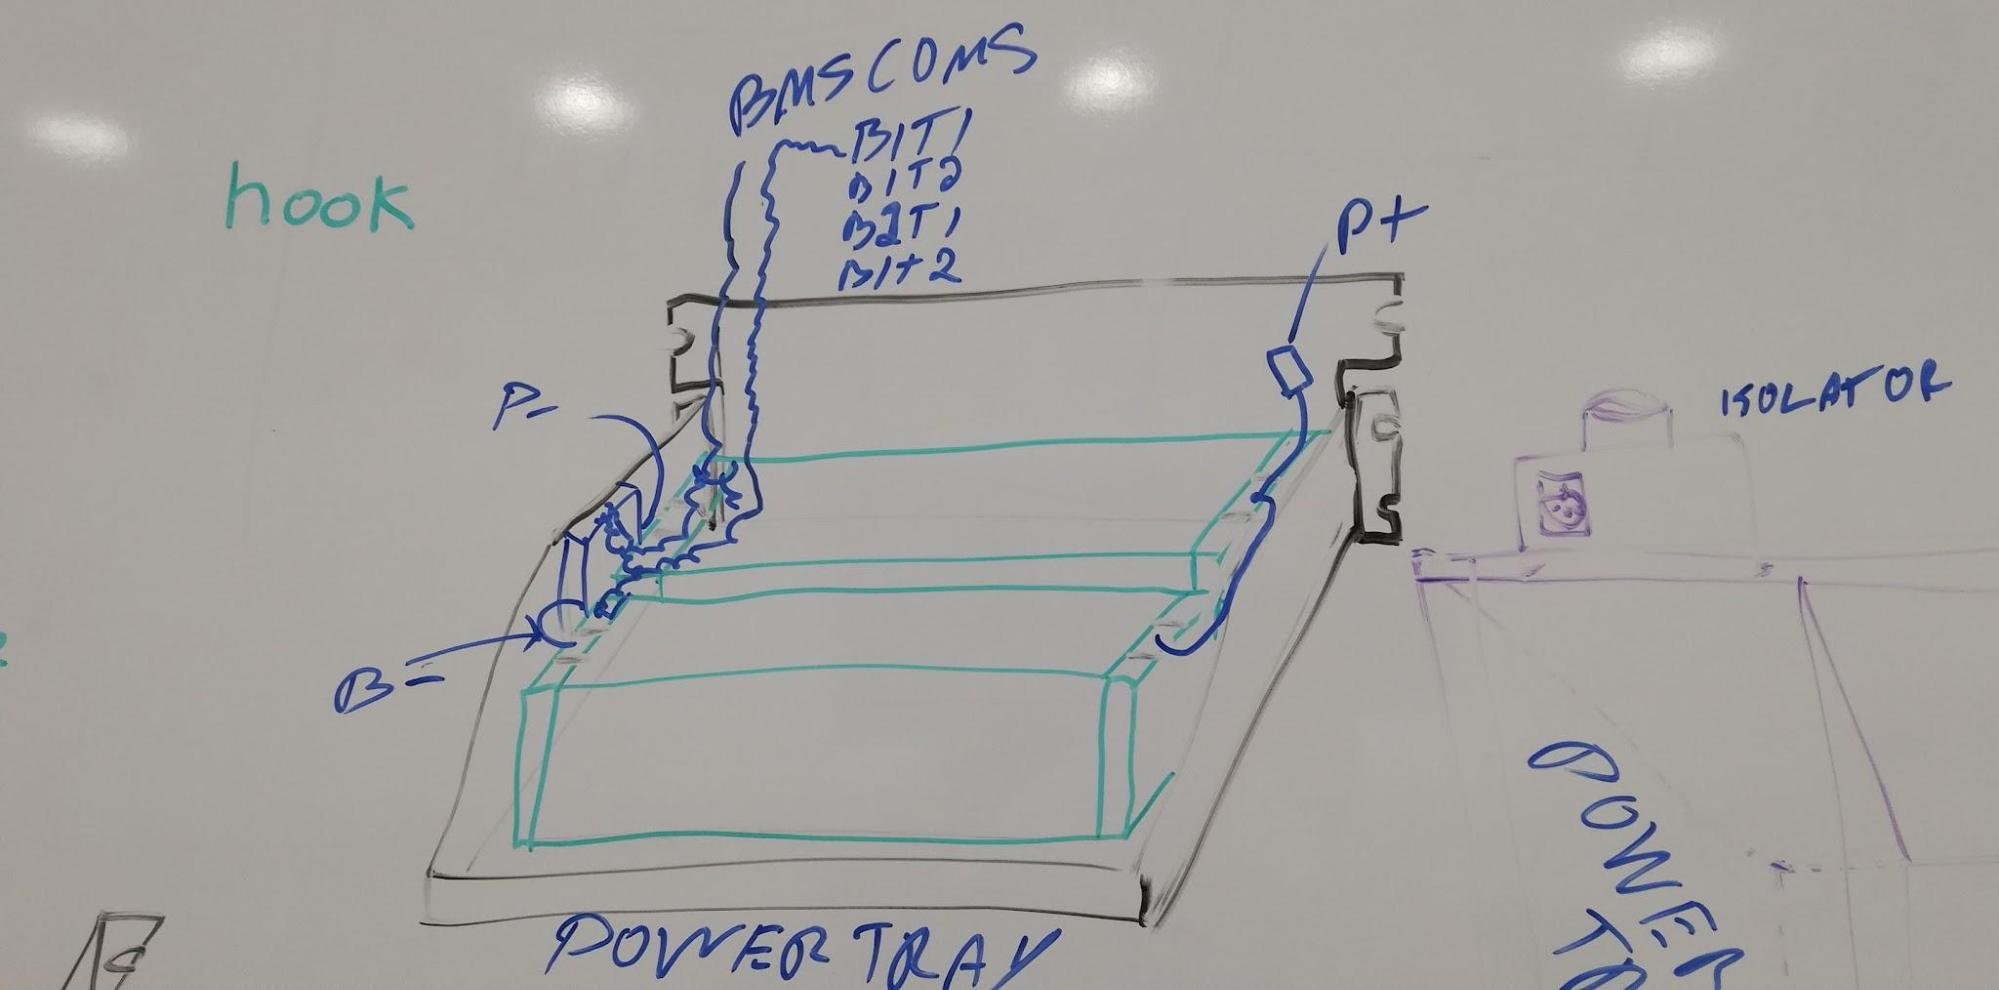 BMS COMS
B1T1
B1T2
B2T1
B1T2
hook
P+
P-
ISOLATOR
B-
POWER TRAY
POWER